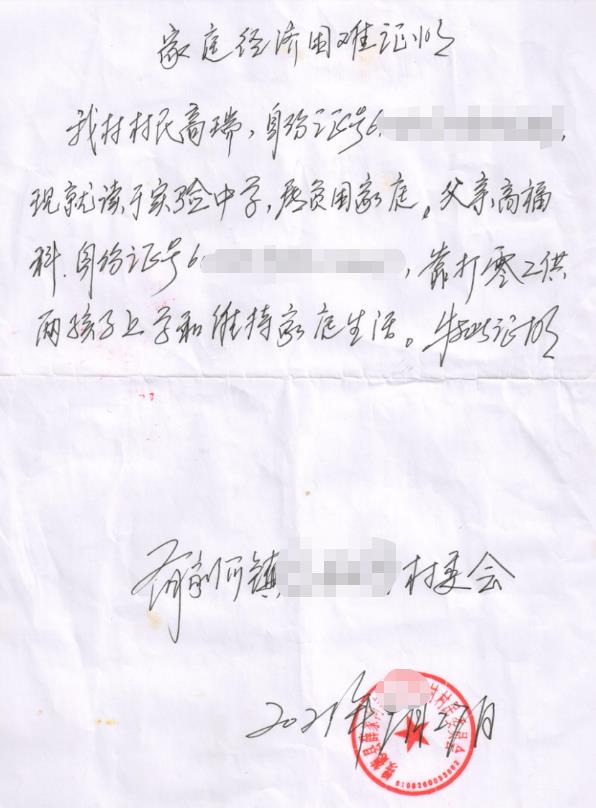 家庭经济困难证明
我村村民高瑞，身份证号6
现就读于实验中学，房贫困家庭。父亲高福
科，身份证号6，靠打零工供
两孩子上学和维持家庭生活。特此证明
镇 村委会
2021年 月27日